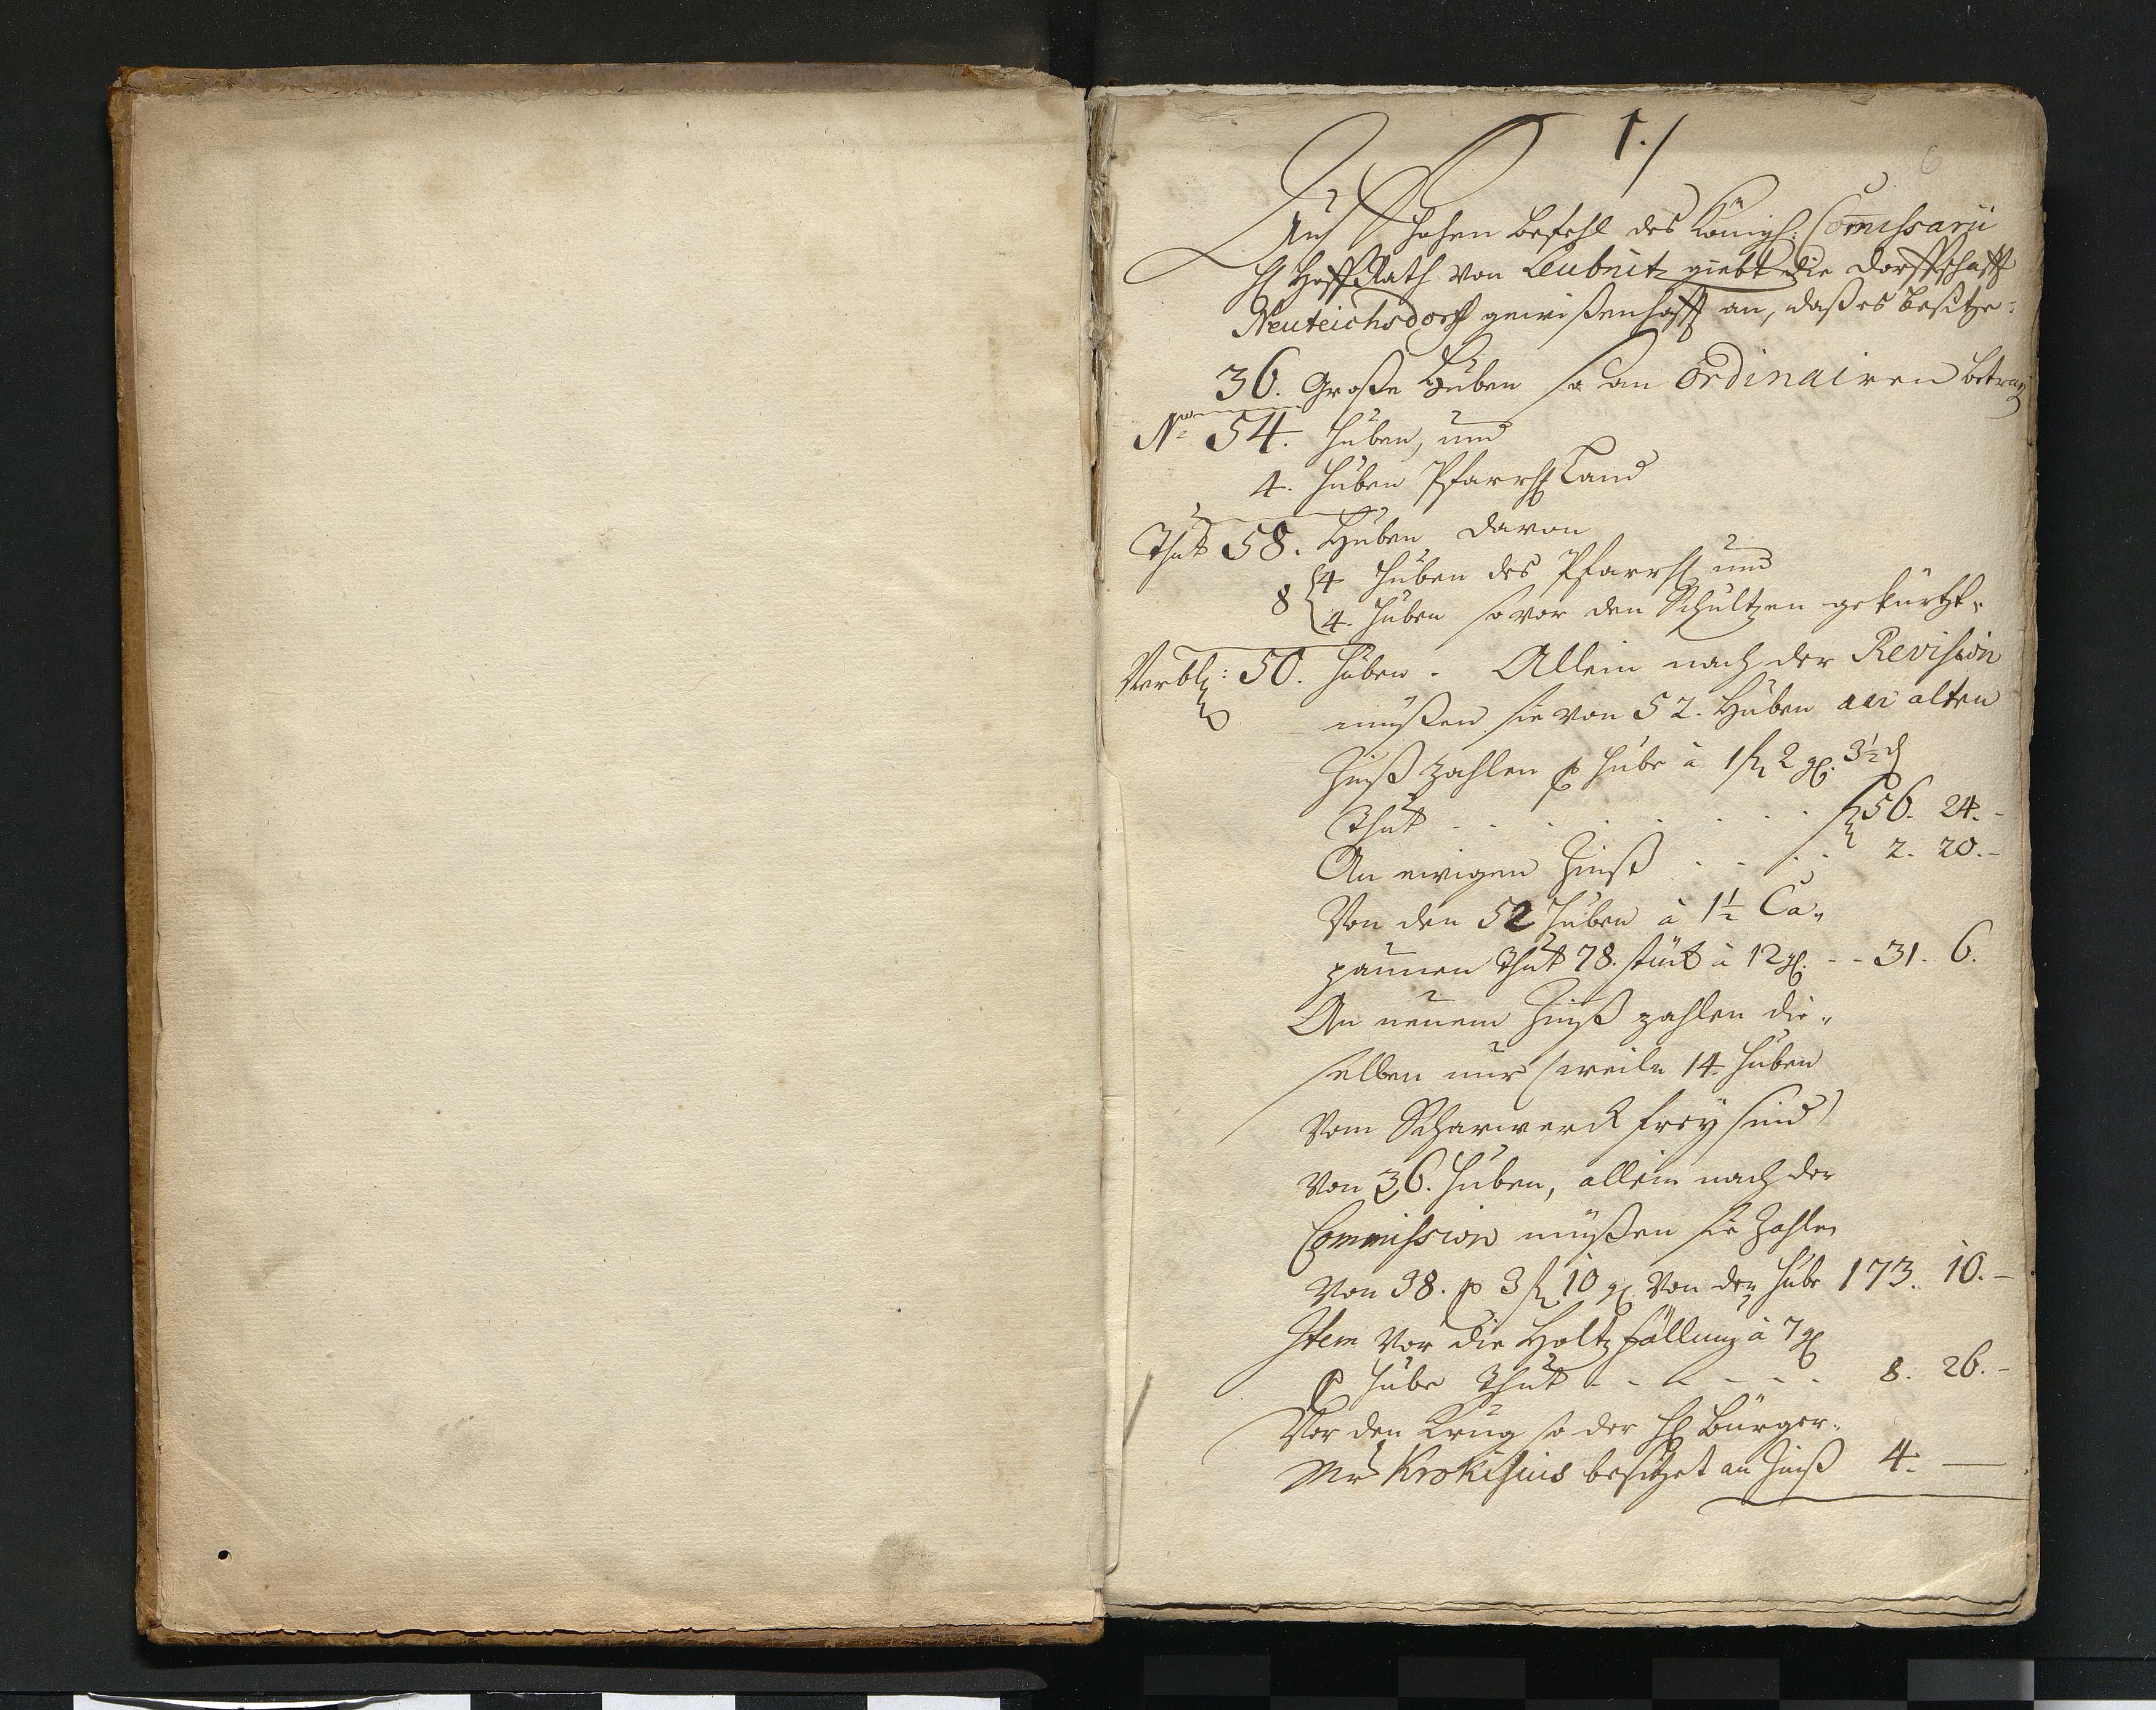 1./
6
Auf Hohen Befehl des Königl: Com̅issarii
H. HoffRath von Leubnitz giebt die Dorffschafft
Neuteichsdorff gewißenhafft an, daß es besitze:
36. Große Huben so an ordinairen betrag
No 54. Huben, und
4. Huben Pfarrh Land
Thut 58. Huben davon
8 { 4 Huben des Pfarrh und
4. Huben so vor den Schultzen gekürtzt.
Verbl: 50. Huben. Allein nach der Revision
müßen sie von 52. Huben an alten
Zinß zahlen p Hube à 1 fl 2 gl. 3½ d
Thut - - - - - - - fl 56. 24. -
An ewigen Zinß - - - - 2. 20. -
Von den 52 Huben à 1½ Ca-
paunen thut 78. stück à 12 gl. - - 31. 6.
An neuem Zinß zahlen die-
selben nur (weiln 14. Huben
vom Scharwerck frey sind)
von 36. Huben, allein nach der
Commission müßen sie zahlen
von 38. p 3 fl 10 gl von der Hube 173. 10. -
Item vor die Holtz fällung à 7 gl
p Hube thut - - - - - - 8. 26. -
Vor den Krug so der H. Bürger-
Mr Krokisius besitzet an Zinß 4. —